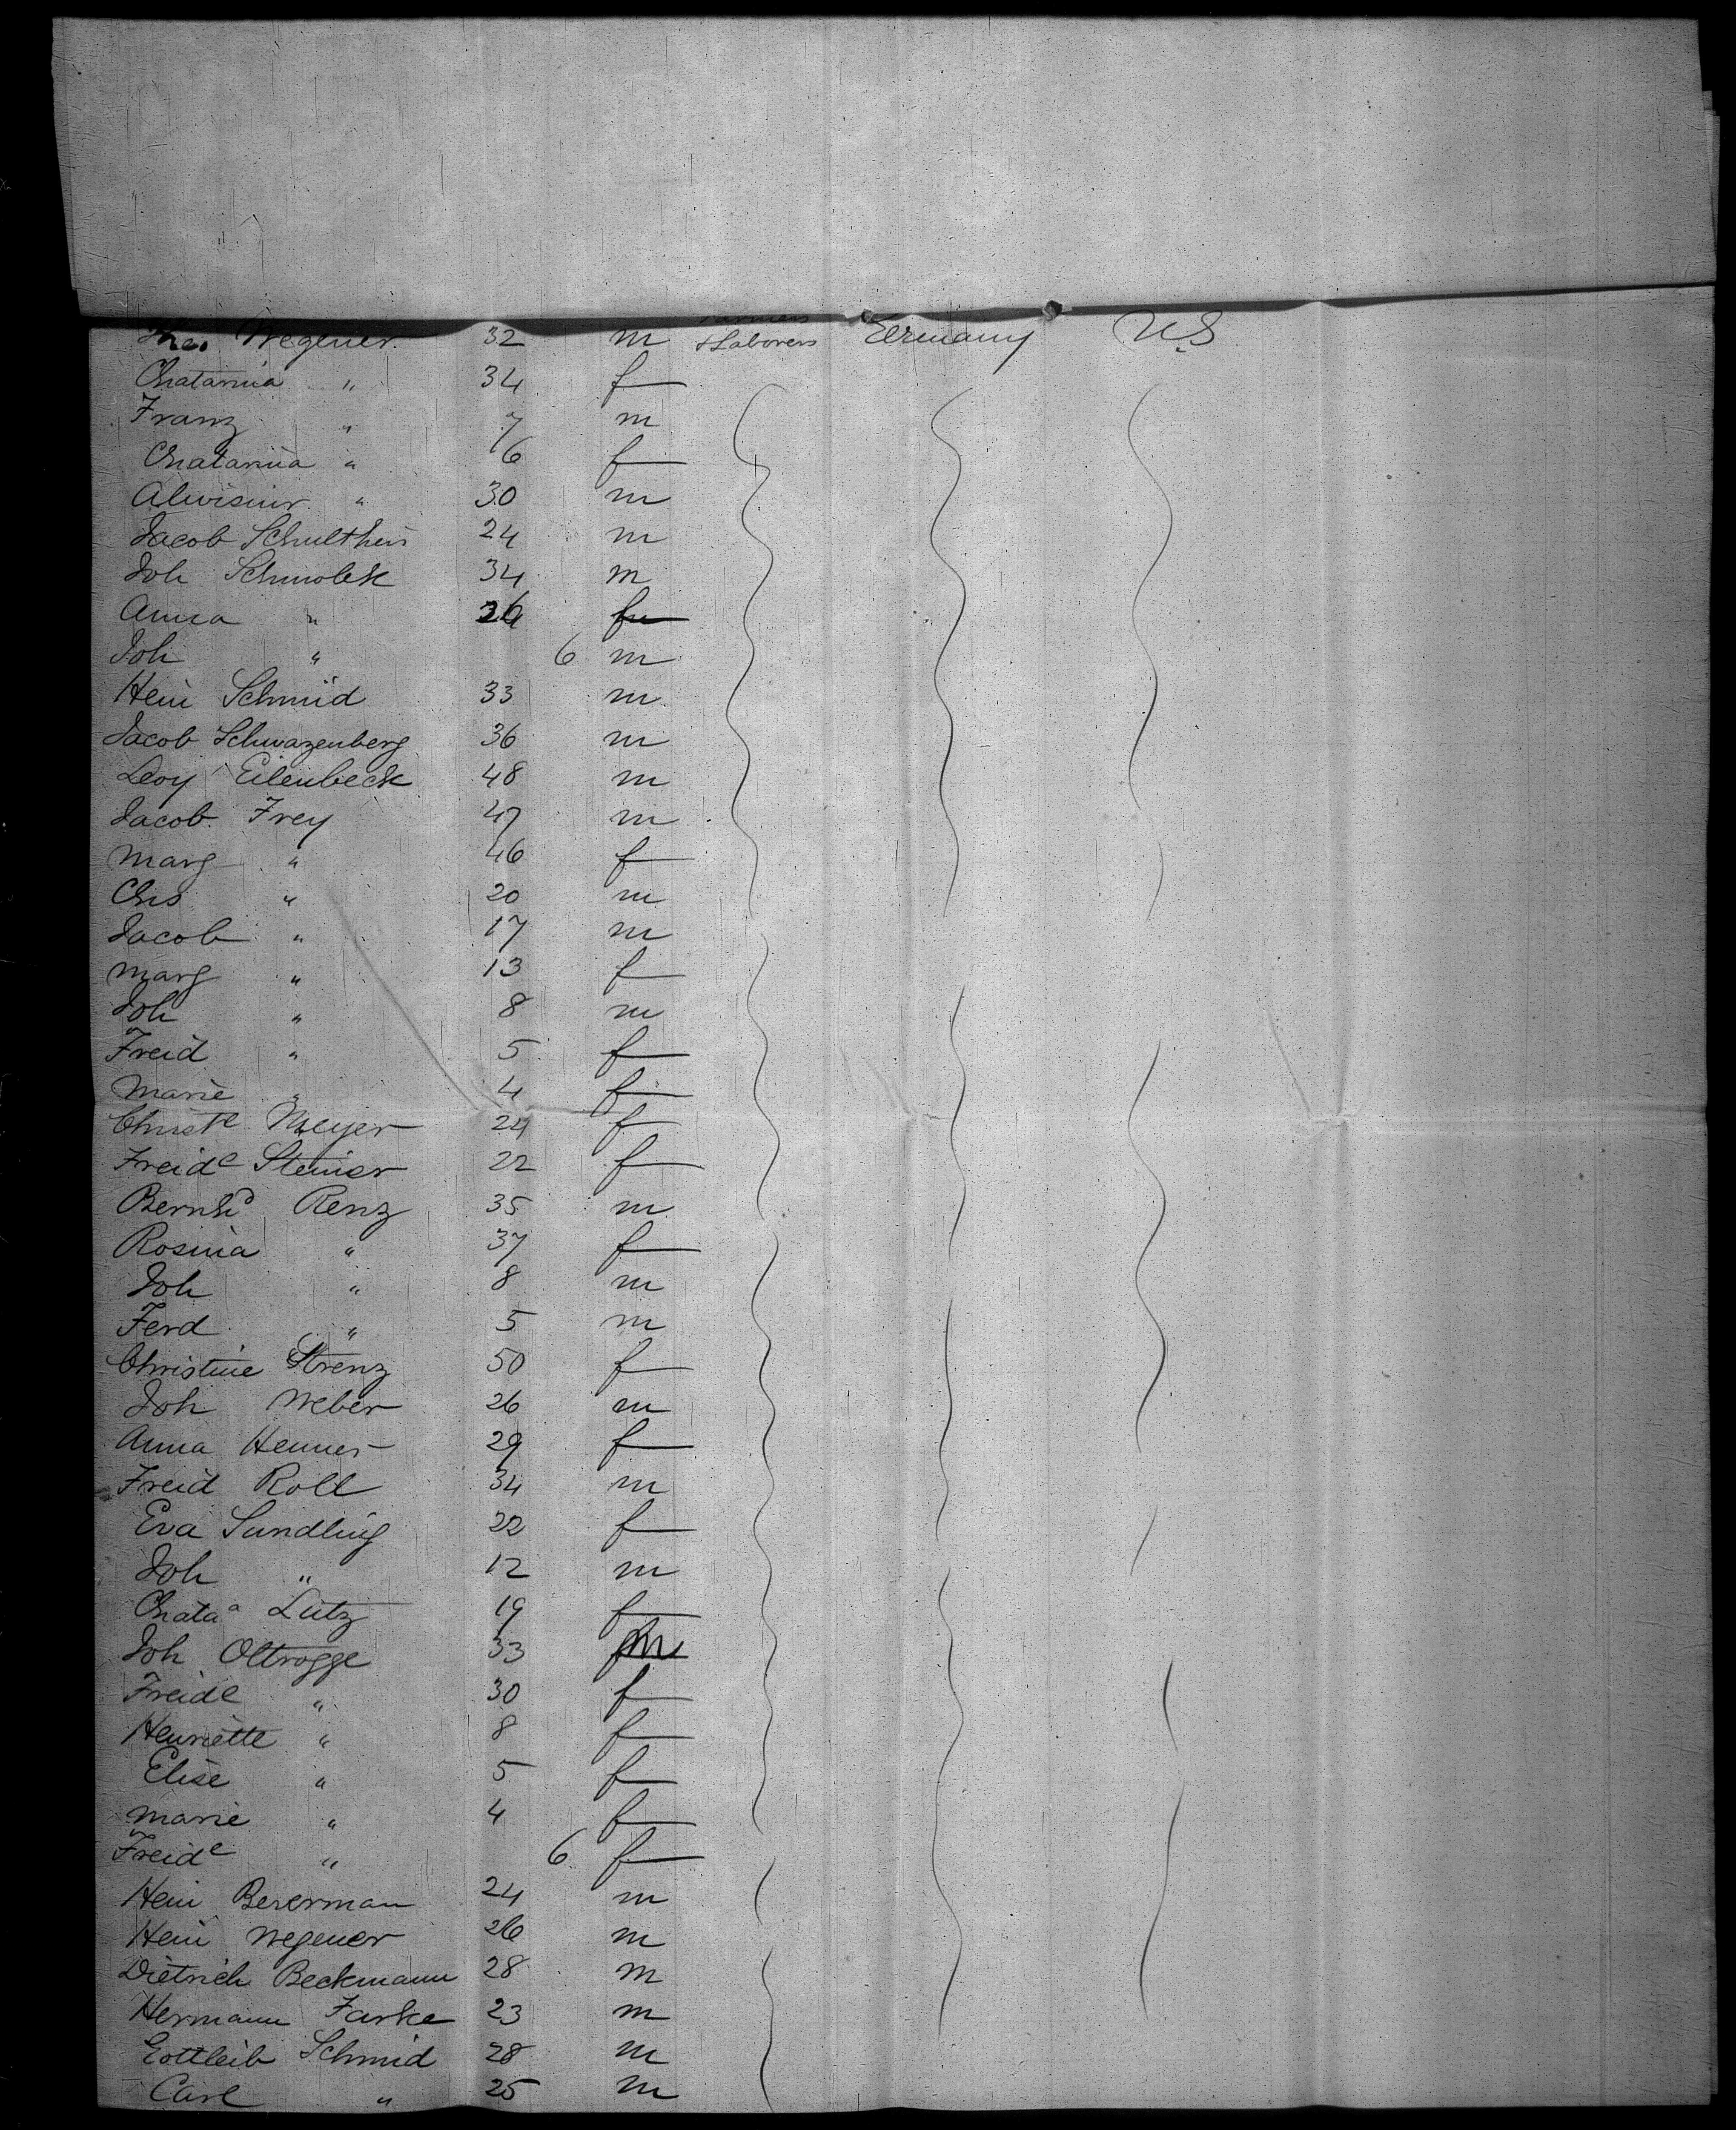 Wegener 32 m Farmers & Laborers Germany U.S
Chatarina " 34 f
Franz " 7 m
Chatarina " 6 f
30 m
Jacob Schultheis 24 m
Joh Schmolek 34 m
Anna " 26 f
Joh " 6 m
Hein Schmid 33 m
Jacob Schwazenberg 36 m
Levy Eilenbeck 48 m
Jacob Frey 47 m
Marg " 46 f
Chs " 20 m
Jacob " 17 m
Marg " 13 f
Joh " 8 m
Freid " 5 f
Marie " 4 f
Christe Meyer 24 f
Freide Steiner 22 f
Bernhd Renz 35 m
Rosina " 37 f
Joh " 8 m
Ferd " 5 m
Christine Strenz 50 f
Joh Weber 26 m
Anna Hennes 29 f
Freid Roll 34 m
Eva Sundling 22 f
Joh " 12 m
Chataa Lutz 19 f
Joh Oltrogge 33 m
Freide " 30 f
Henriette " 8 f
Elise " 5 f
Marie " 4 f
Freide " 6 f
Hein Beserman 24 m
Hein Wegener 26 m
Dietrich Beckmann 28 m
Hermann Farke 23 m
Gottleib Schmid 28 m
Carl " 25 m